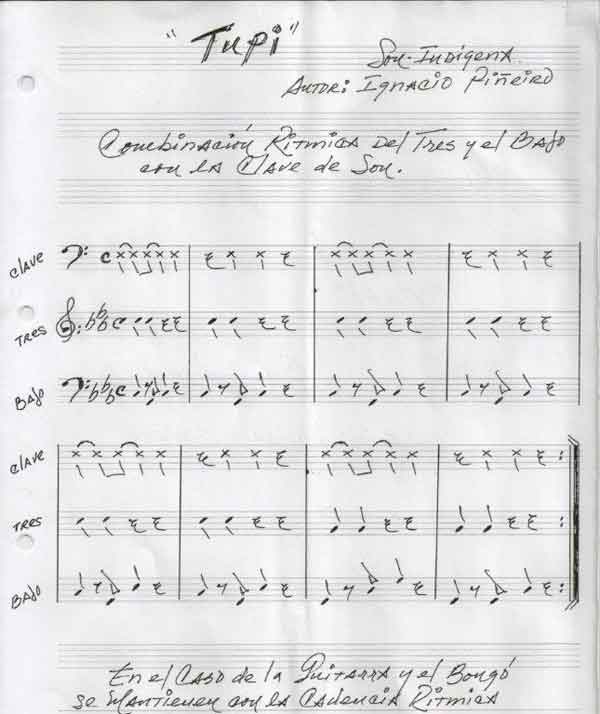 "Tupi"
Son-Indígena.
Autor: Ignacio Piñeiro
Combinación Ritmica Del Tres y el Bajo
con la Clave de Son.
Clave
Tres
Bajo
Clave
Tres
Bajo
En el Caso de la Guitarra y el Bongó
se Mantienen con la Cadencia Ritmica